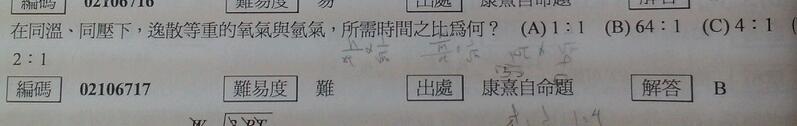 編碼 02106716 難易度 易 出處 康熹自命題 解答
在同溫、同壓下，逸散等重的氧氣與氫氣，所需時間之比為何？ (A) 1：1 (B) 64：1 (C) 4：1 (
2：1
編碼 02106717 難易度 難 出處 康熹自命題 解答 B